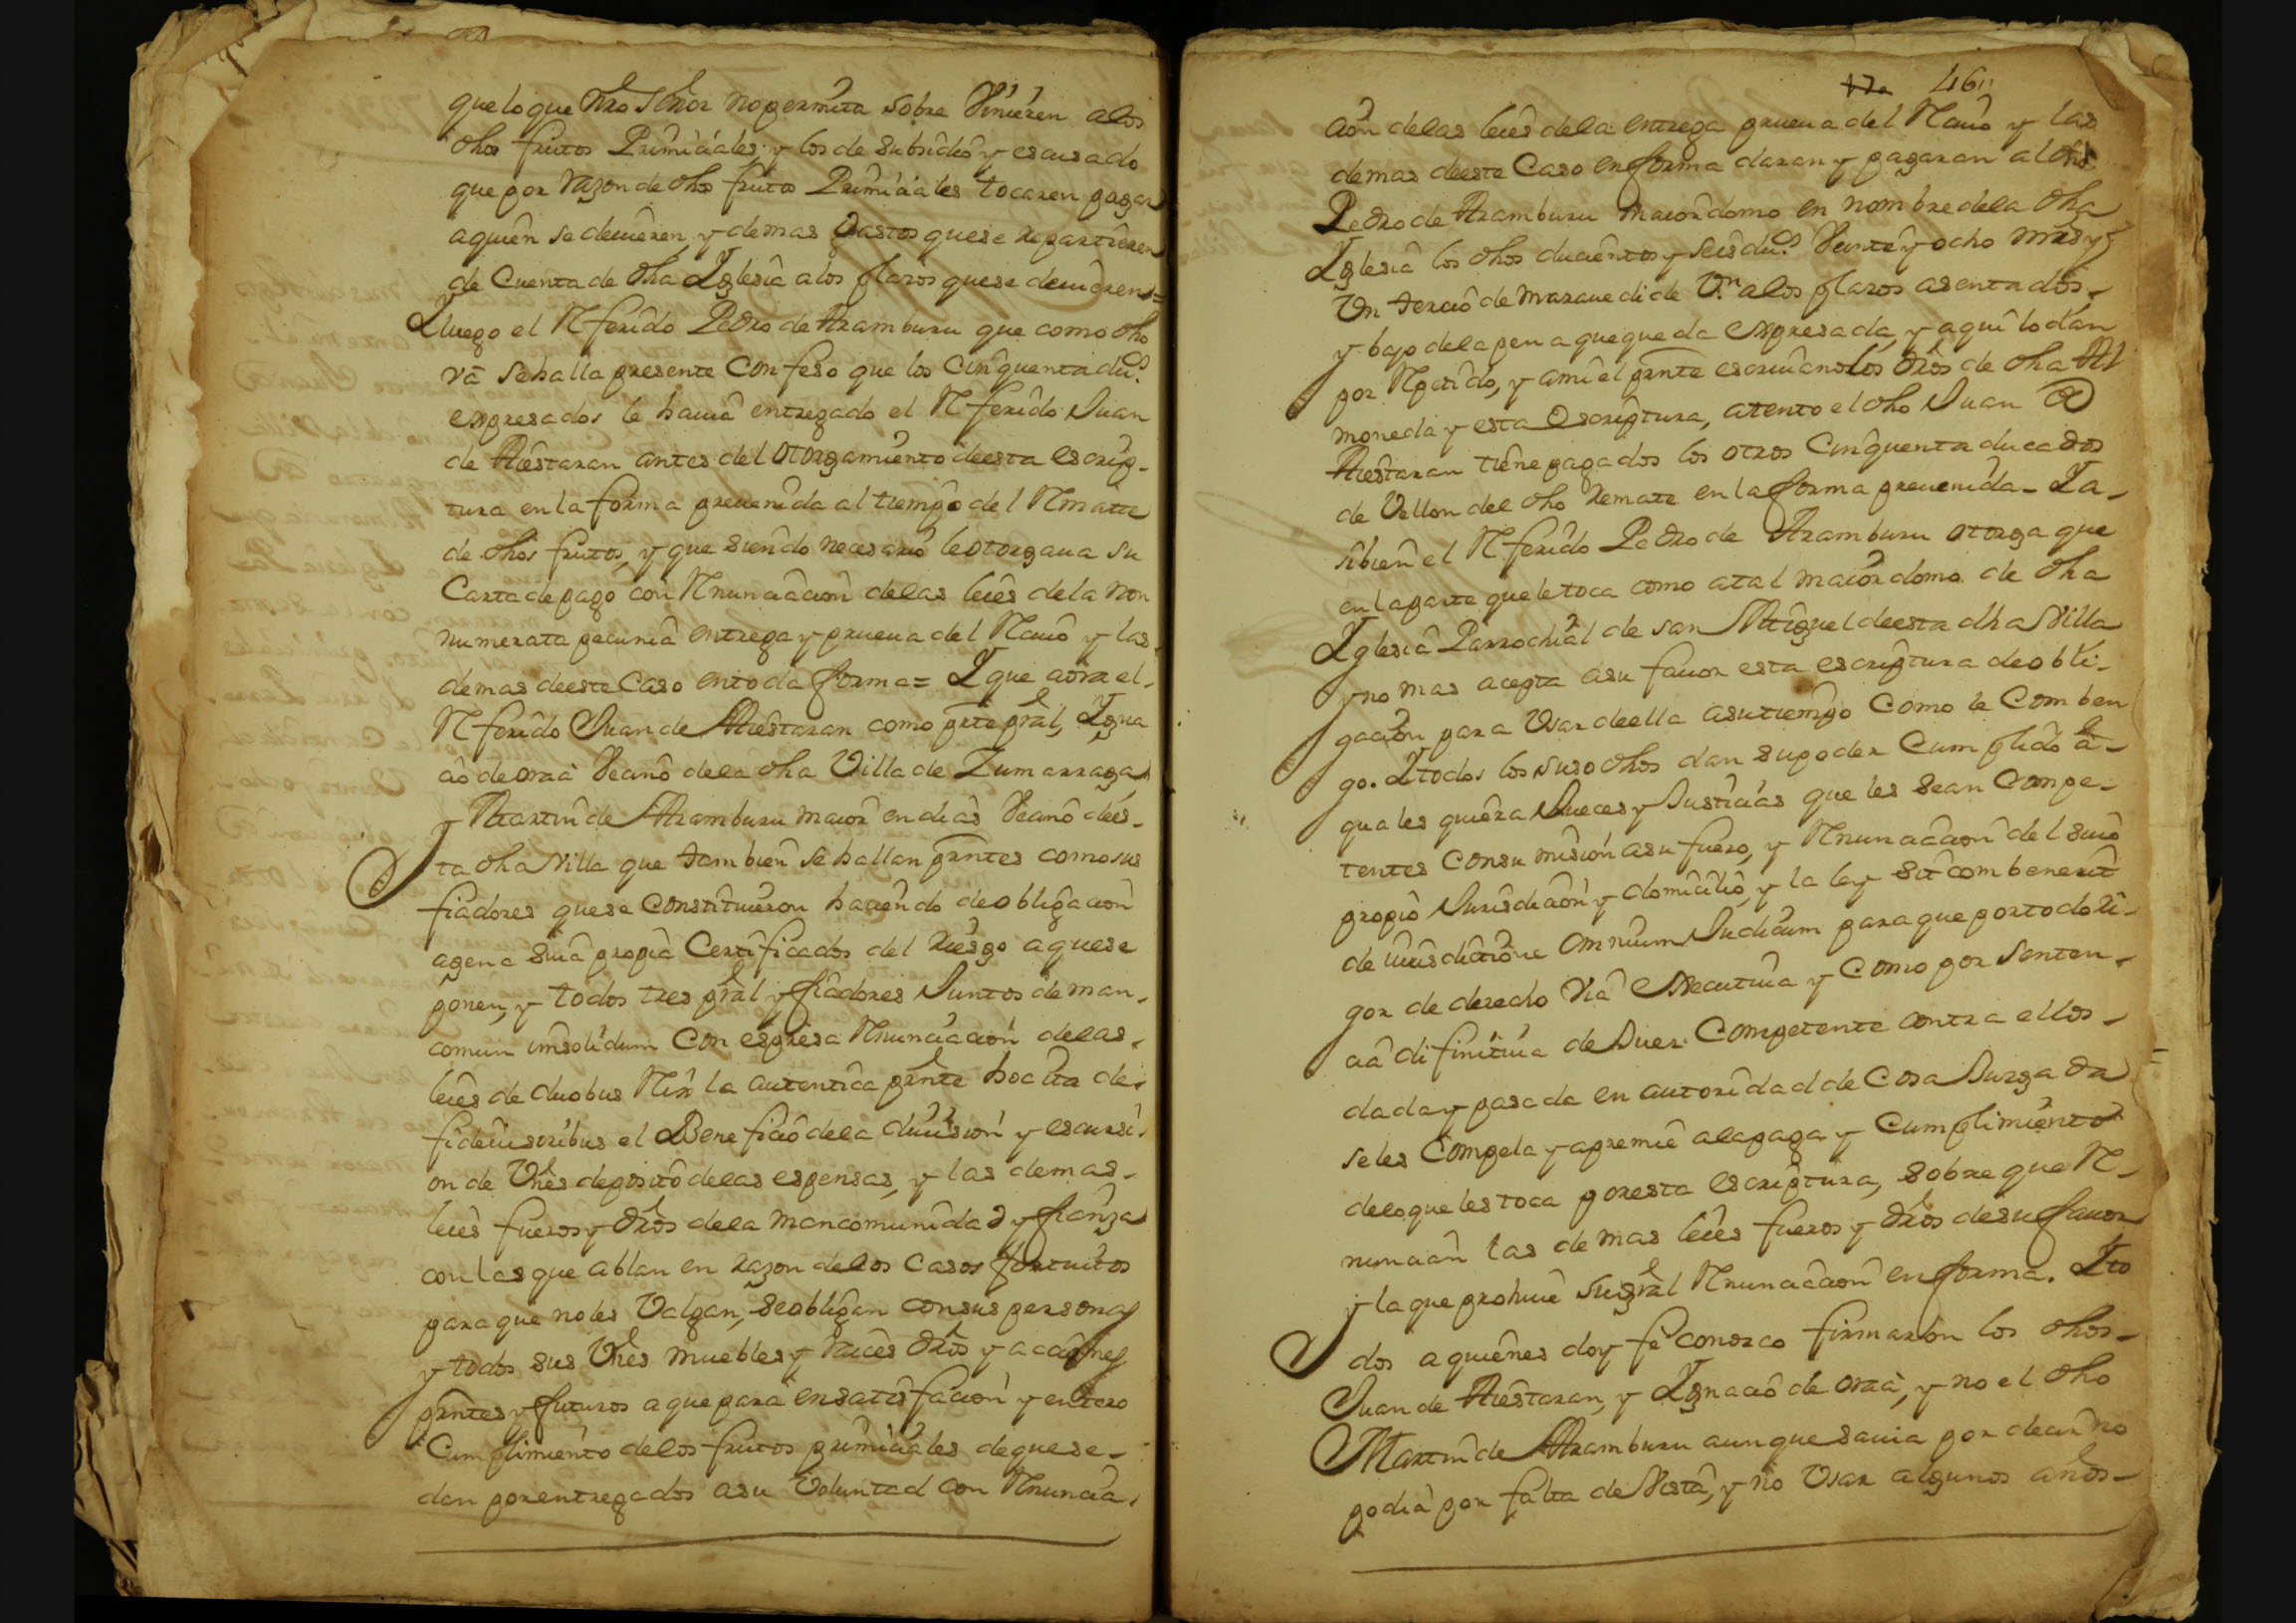 que lo que nro Señor no permita sobre Vinieren a los
dhos frutos Primiciales, y los de subsidio y escusado
que por razon de dhos frutos Primiciales tocaren pagar
a quien se deuieren, y demas Gastos que se repartieren
de Cuenta de dha Iglesia a los plazos que se deuieren=
Y luego el Referido Pedro de Aramburu que como dho
va se halla presente Confeso que los Cinquenta du.os
expresados le hauia entregado el Referido Juan
de Aiestaran antes del otorgamiento de esta escrip-
tura en la forma preuenida al tiempo del Rmatte
de dhos frutos, y que siendo necesario le otorgaua su
Carta de pago con Rnunciacion de las leies de la non
numerata pecunia entrega y prueua del Rciuo y las
demas de este Caso en toda forma= Y que aora el-
Rferido Juan de Aiestaran como pnte pral, Igna
cio de oraa Vecino de la dha Villa de Zumarraga,
y Martin de Aramburu maior en dias Vecino de es-
ta dha Villa que tambien se hallan pntes como sus
fiadores que se Constituieron haciendo de obligacion
agena suia propia Certificados del riesgo a que se
ponen, y todos tres pral y fiadores Juntos de man-
comun insolidum Con espresa Rnunciacion de las-
leies de duobus Rex la autentica pnte hoc ita de-
fideiusoribus el Beneficio de la diuision y escursi-
on de Vnes deposito de las espensas, y las demas-
leies fueros y dros de la mancomunidad y fianza
con las que ablan en razon de los Casos fortuitos
para que no les Valgan, se obligan con sus personas
y todos sus Vnes muebles y raices dros y acciones
pntes y futuros a que para en satisfacion y entero
Cumplimiento de los frutos primiciales de que se-
dan por entregados a su Voluntad con Rnuncia-
46
cion de las leies de la entrega prueua del Rciuo y las
demas de este Caso en forma daran y pagaran al dho
Pedro de Aramburu maiordomo en nombre de la dha
Iglesia los dhos ducientos y seis du.os Veinte y ocho mrs y
Vn tercio de marauedi de Vn a los plazos asentados,-
y bajo de la pena que queda expresada, y aqui lo dan
por Rpetido, y a mi el pnte escriuano los dros de dha Al
moneda y esta Escriptura, atento el dho Juan de
Aiestaran tiene pagados los otros Cinquenta ducados
de Vellon del dho remate en la forma preuenida- Ta-
mbien el Rferido Pedro de Aramburu otorga que
en la parte que le toca como a tal maiordomo de dha
Iglesia Parrochial de san Miguel de esta dha Villa
y no mas acepta a su fauor esta escriptura de obli-
gacion para Vsar de ella a su tiempo Como le Comben
go. Y todos los suso dhos dan su poder Cumplido a-
quales quiera Jueces y Justicias que les sean Compe-
tentes Con su mision a su fuero, y Rnunciacion del suio
propio Jurisdicion y domicilio, y la ley sit combenerit
de iurisdictione omnium Judicum para que por todo ri-
gor de derecho Via Executiua y Como por senten-
cia difinitiua de Juez Competente contra ellos-
dada y pasada en autoridad de Cosa Juzgada
se les Compela y apremie a la paga y Cumplimiento
de lo que les toca por esta escriptura, sobre que R-
nuncian las demas leies fueros y dros de su fauor
y la que prohiue su gral Rnunciacion en forma. Y to
dos a quienes doy fe conozco firmaron los dhos-
Juan de Aiestaran, y Ignacio de oraa, y no el dho
Martin de Aramburu aunque sauia por decir no
podia por falta de Vista, y no Vsar algunos años-